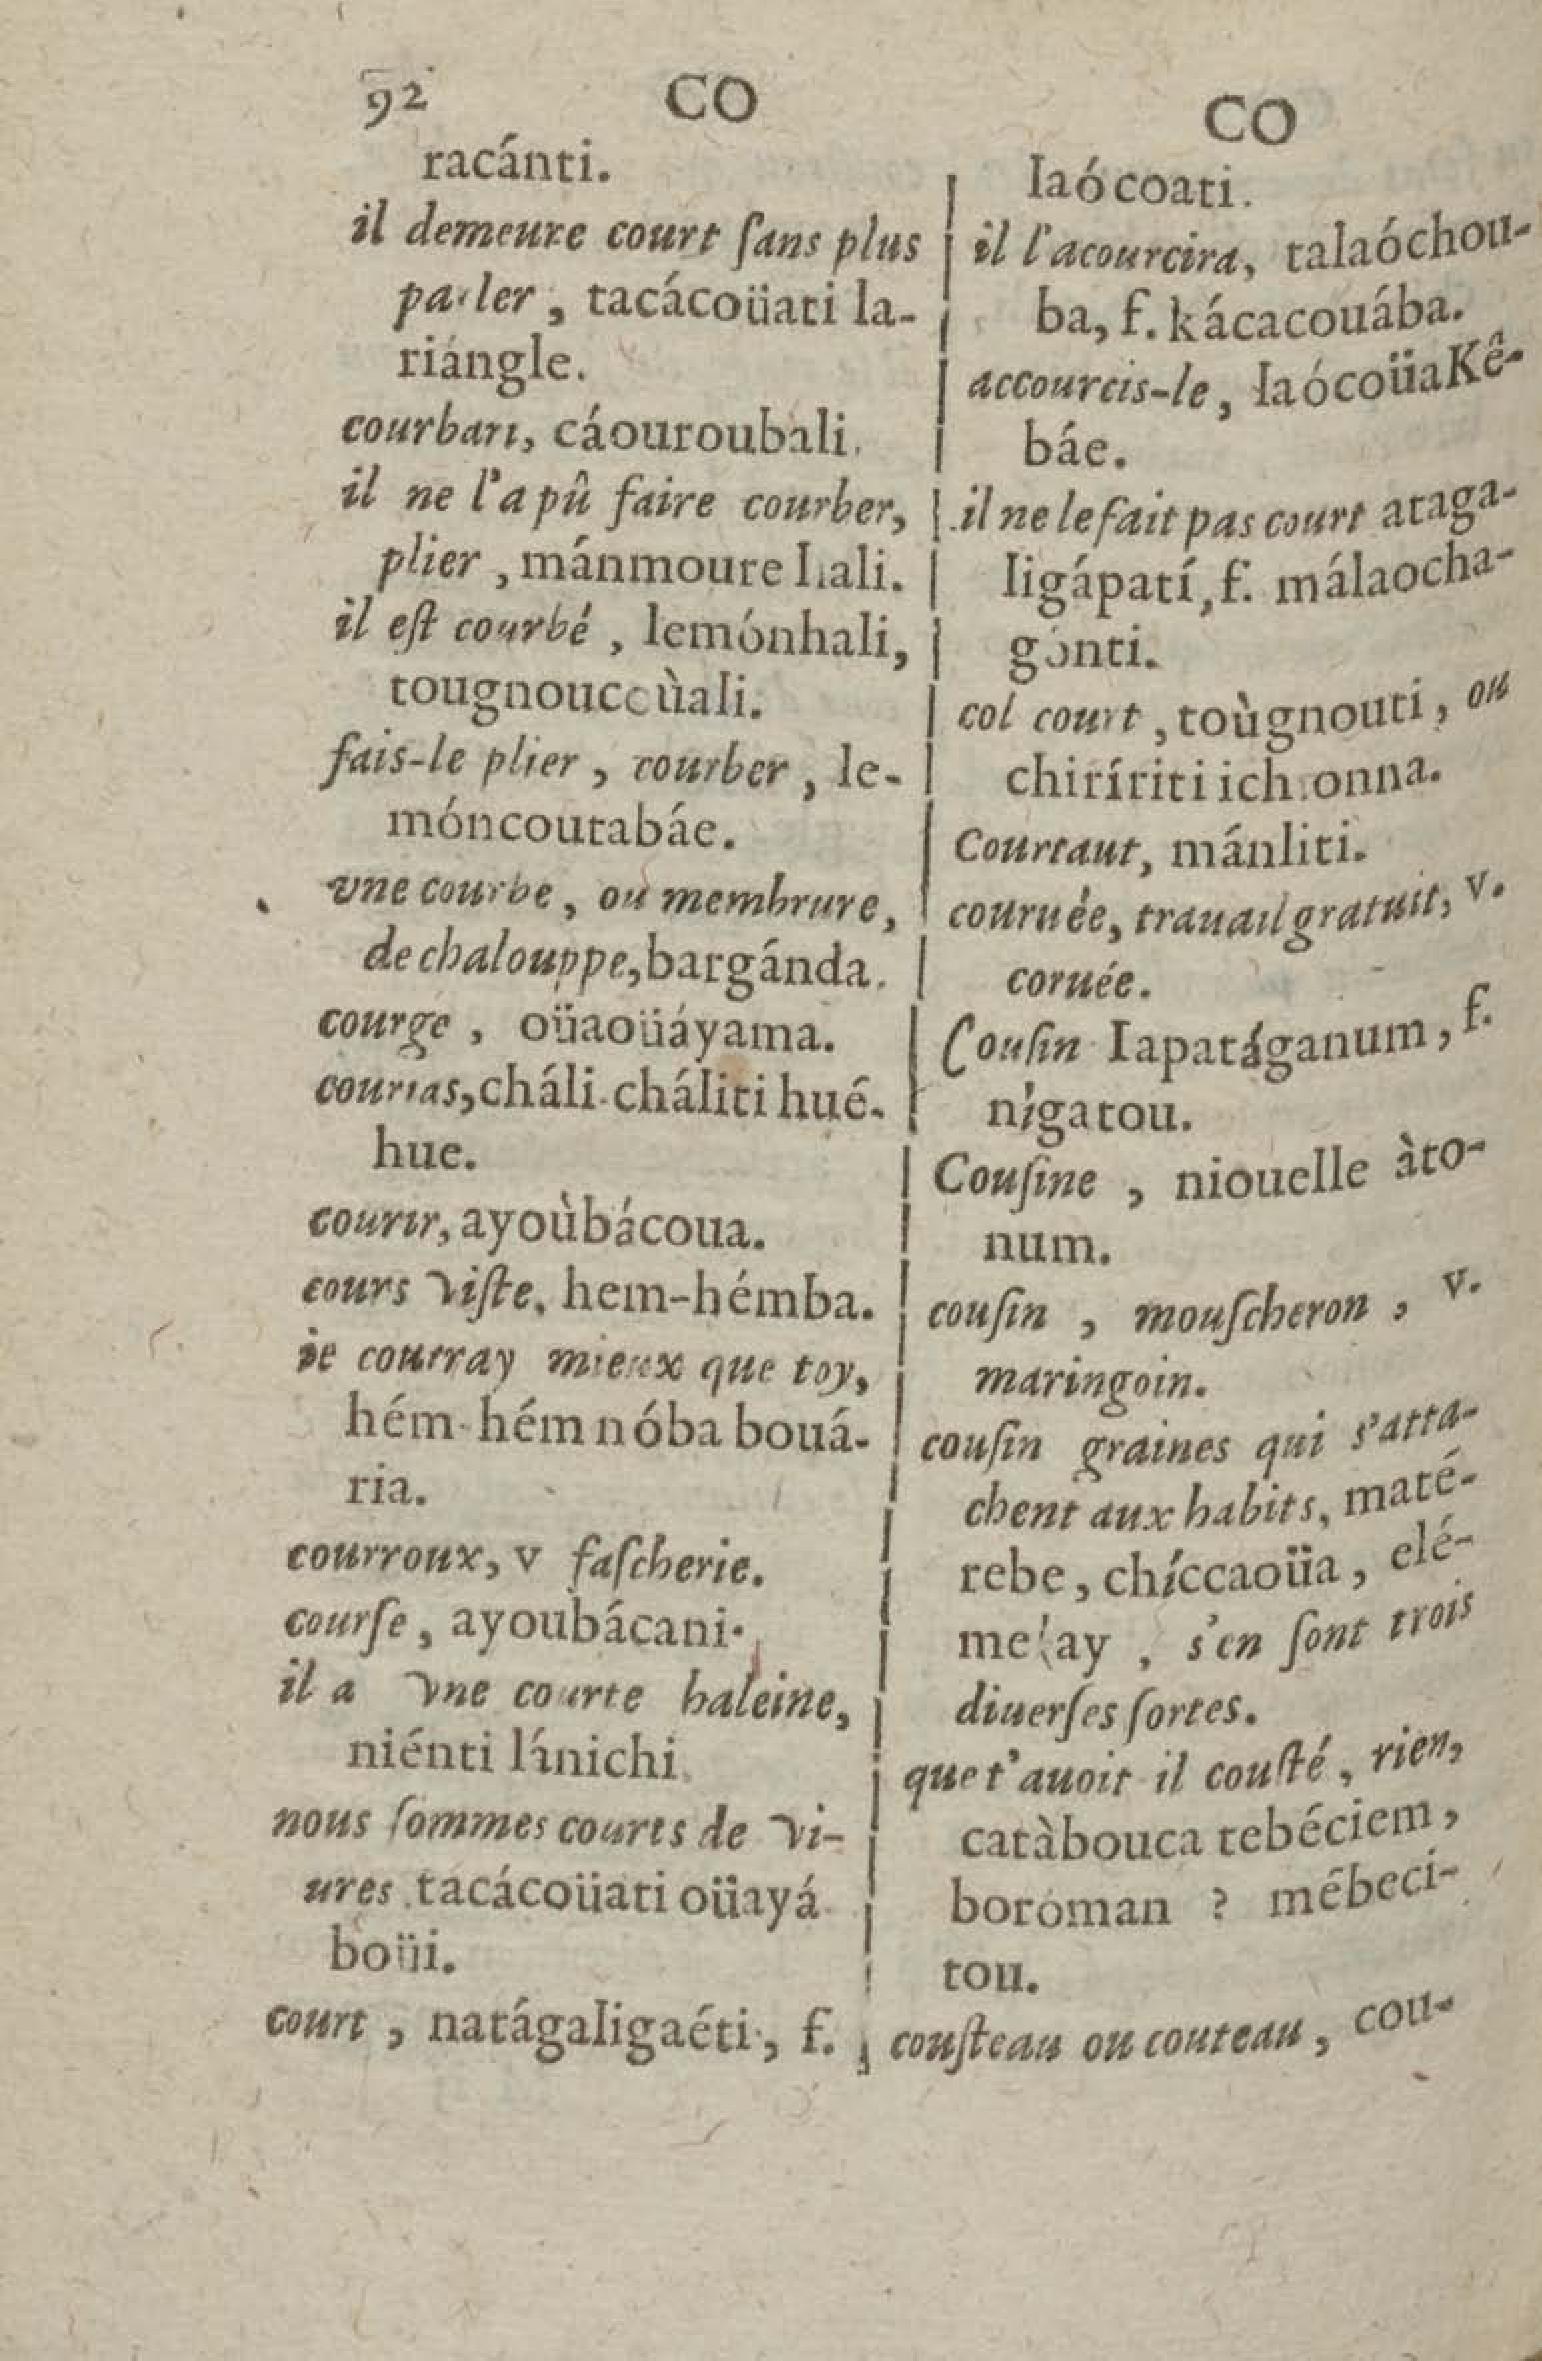 92 CO
racánti.
il demeure court ſans plus
parler, tacácoüati la-
riángle.
courbari, cáouroubali.
il ne l'a pû faire courber,
plier, mánmoure Iali.
il eſt courbé, lemónhali,
tougnouccùali.
fais-le plier, courber, le-
móncoutabáe.
vne courbe, ou membrure,
de chalouppe, bargánda.
courge, oüaoüáyama.
courias, cháli-cháliti hué-
hue.
courir, ayoùbácoua.
cours viſte, hem-hémba.
ie courray mieux que toy,
hém-hém nóba bouá-
ria.
courroux, v faſcherie.
courſe, ayoubácani.
il a vne courte haleine,
niénti lánichi
nous ſommes courts de vi-
ures tacácoüati oüayá
boüi.
court, natágaligaéti, f.
CO
Iaócoati.
il l'acourcira, talaóchou-
ba, f. kácacouába.
accourcis-le, Iaócoüakê-
báe.
il ne le fait pas court ataga-
Iigápatí, f. málaocha-
gónti.
col court, toùgnouti, ou
chiríriti ichionna.
Courtaut, mánliti.
couruée, trauail gratuit, v.
coruée.
Couſin Iapatáganum, f.
nígatou.
Couſine, niouelle àto-
num.
couſin, mouſcheron, v.
maringoin.
couſin graines qui s'atta-
chent aux habits, maté-
rebe, chíccaoüa, elé-
melay, s'en ſont trois
diuerſes ſortes.
que t'auoit il couſté, rien,
catàbouca tebéciem,
boróman ? mébeci-
tou.
couſteau ou couteau, cou-